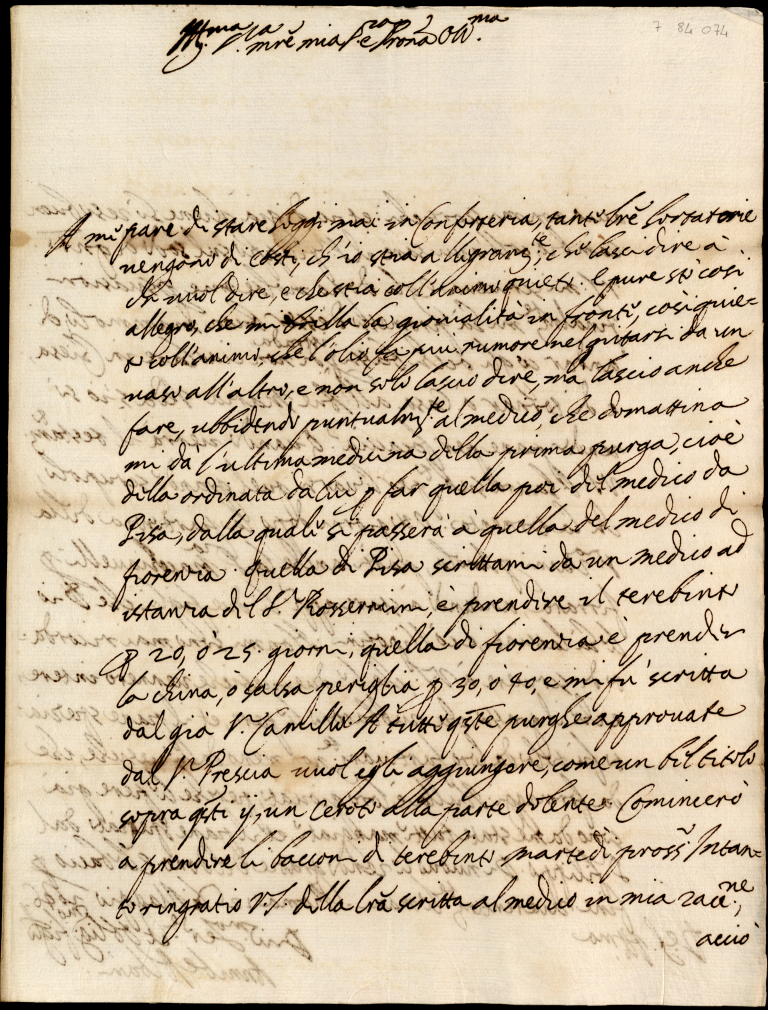 7 84 074
M.ma S.ra mrē mia S.ra e Prona Oss.ma
A mē pare di stare hoggi mai in Conforteria, tante lrē hortatorie
uengono di costì, ch'io stia allegram.te, chē lasci dire à
chi uuol dire, e che stia coll'animo quieto. E pure stò così
allegro, che mi brilla la giouialità in fronte, così quie=
to coll'animo, chē l'olio fà più rumore nel gittarsi da un
uaso all'altro, e non solo lascio dire, mà lascio anche
fare, ubbidendo puntualm.te al medico, che domattina
mi dà l'ultima medicina della prima purga, cioè
della ordinata da lui p far quella poi del medico da
Pisa, dalla quale si passerà à quella del medico di
fiorenza. quella di Pisa scrittami da un medico ad
istanza del S.r Rossermini, è prendere il terebinto
p 20, ò 25. giorni, quella di fiorenza è prender
la china, ò salsa periglia p 30, ò 40, e mi fù scritta
dal già S. Camillo. A tutte qste purghe approuate
dal S.r Prescia uuol egli aggiungere, come un bel titolo
sopra qsti ij, un Ceroto alla parte dolente. Comincerò
à prendere li bocconi di terebinto martedì pross.o Intan=
to ringratio V.S. della lrā scritta al medico in mia racc.ne,
acciò